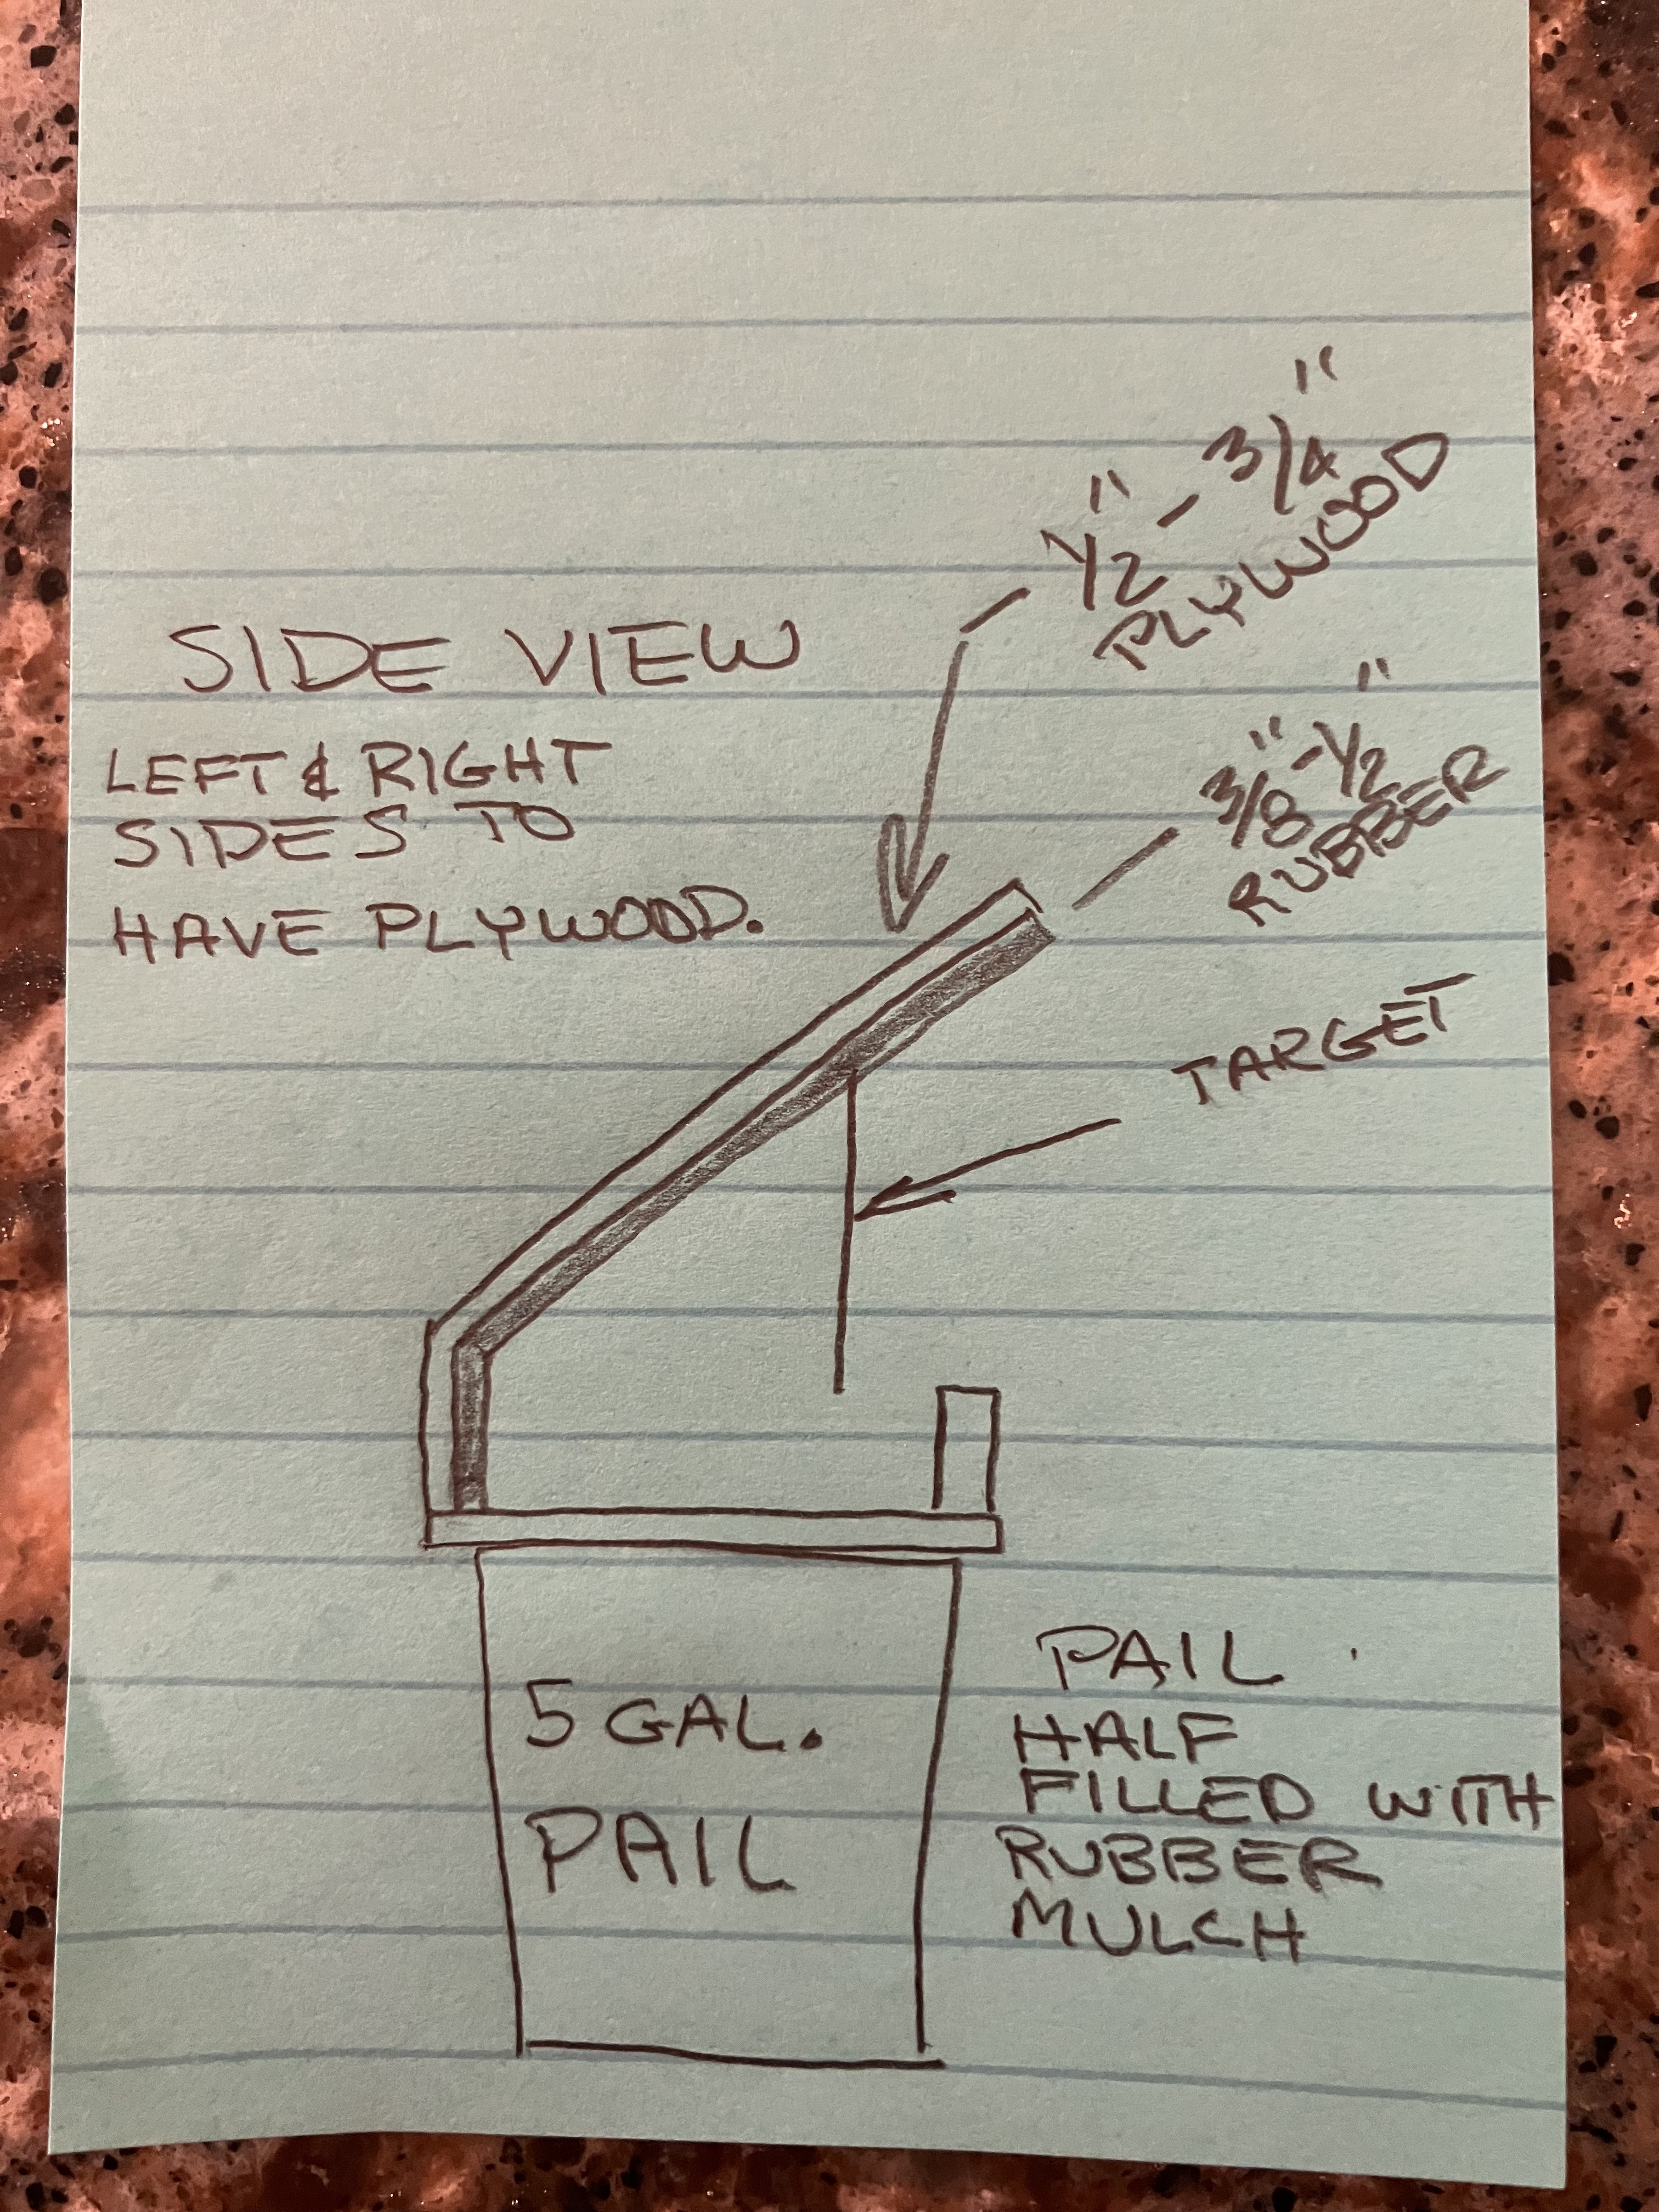 1/2" - 3/4"
PLYWOOD
SIDE VIEW
LEFT & RIGHT
SIDES TO
HAVE PLYWOOD.
3/8" - 1/2"
RUBBER
TARGET
5 GAL.
PAIL
PAIL
HALF
FILLED WITH
RUBBER
MULCH